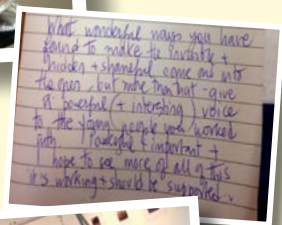 What wonderful ways you have
found to make the invisible +
hidden + shameful come out into
the open, but more than that - give
a powerful (+ interesting) voice
to the young people you worked
with. Powerful + important +
I hope to see more of all of this
it's working + should be supported.